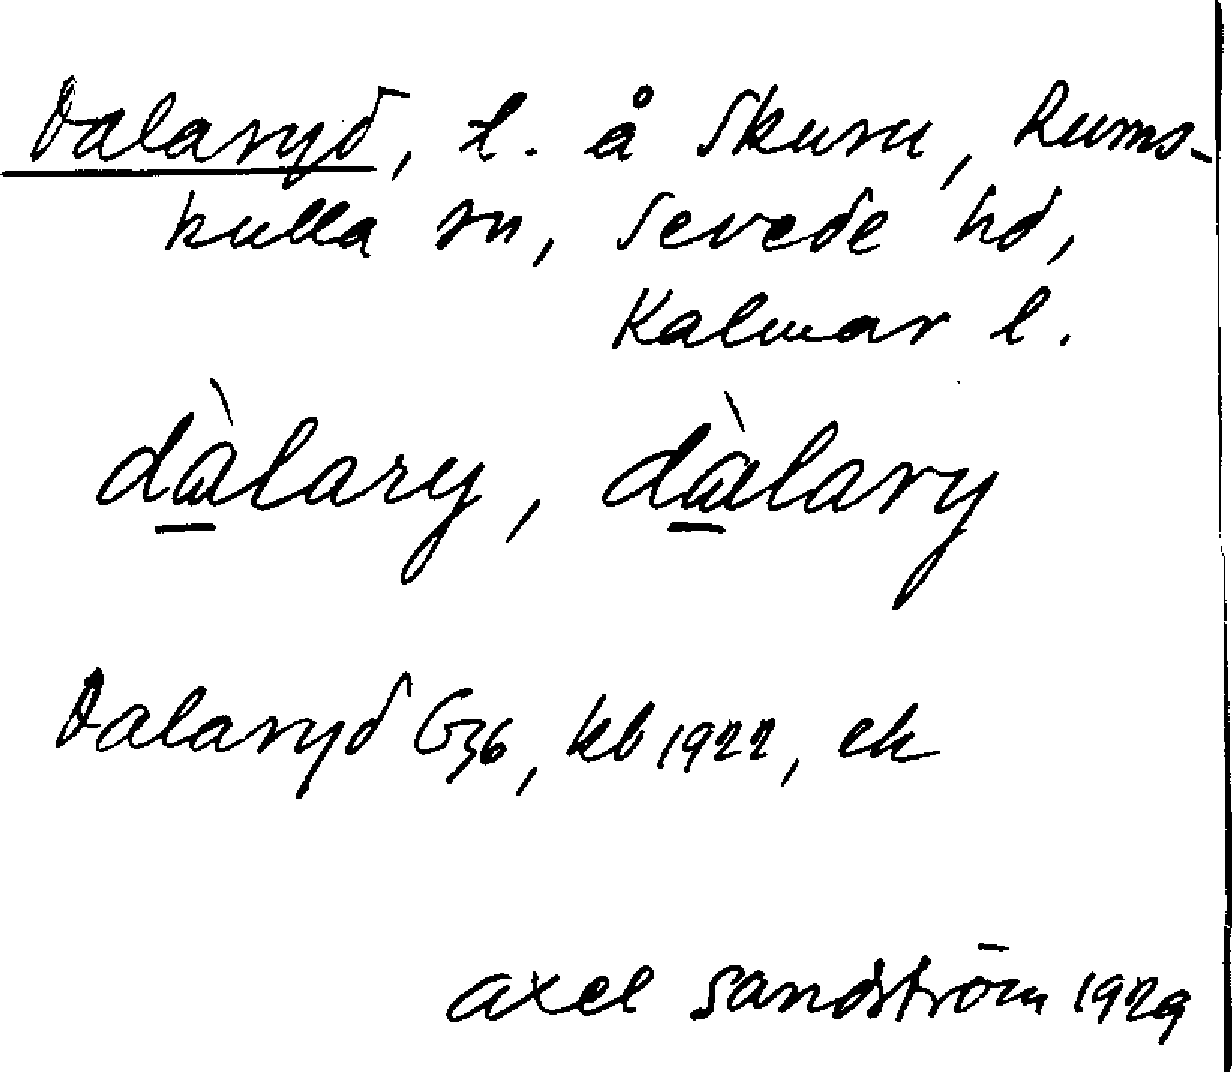 Dalaryd, t. å Skuru, Rums-
kulla sn, Sevede hd,
Kalmar l.
dàlary, dàlary
Dalaryd G36, kb 1922, ek
Axel Sandström 1929